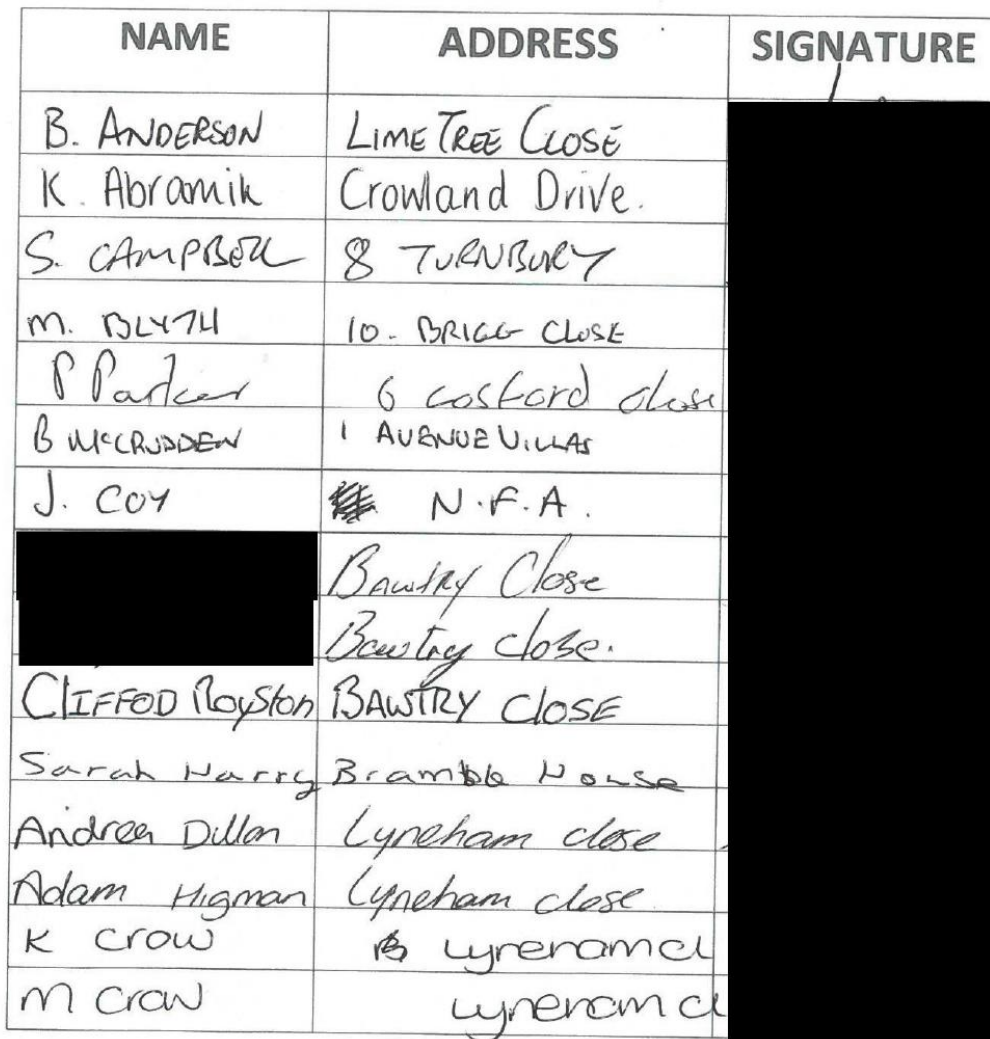 NAME ADDRESS SIGNATURE
B. ANDERSON LIME TREE CLOSE
K. Abramik Crowland Drive.
S. CAMPBELL 8 TURNBURY
M. BLYTH 10. BRIGG CLOSE
P Parker 6 cosford close
B McCRUDDEN 1 AVENUE VILLAS
J. COY N.F.A.
Bawtry Close
Bawtry close.
CLIFFOD Royston BAWTRY CLOSE
Sarah Harry Bramble House
Andrea Dillon Lyneham close
Adam Higman Lyneham close
K Crow Lynenam cl
M Crow Lynenam cl